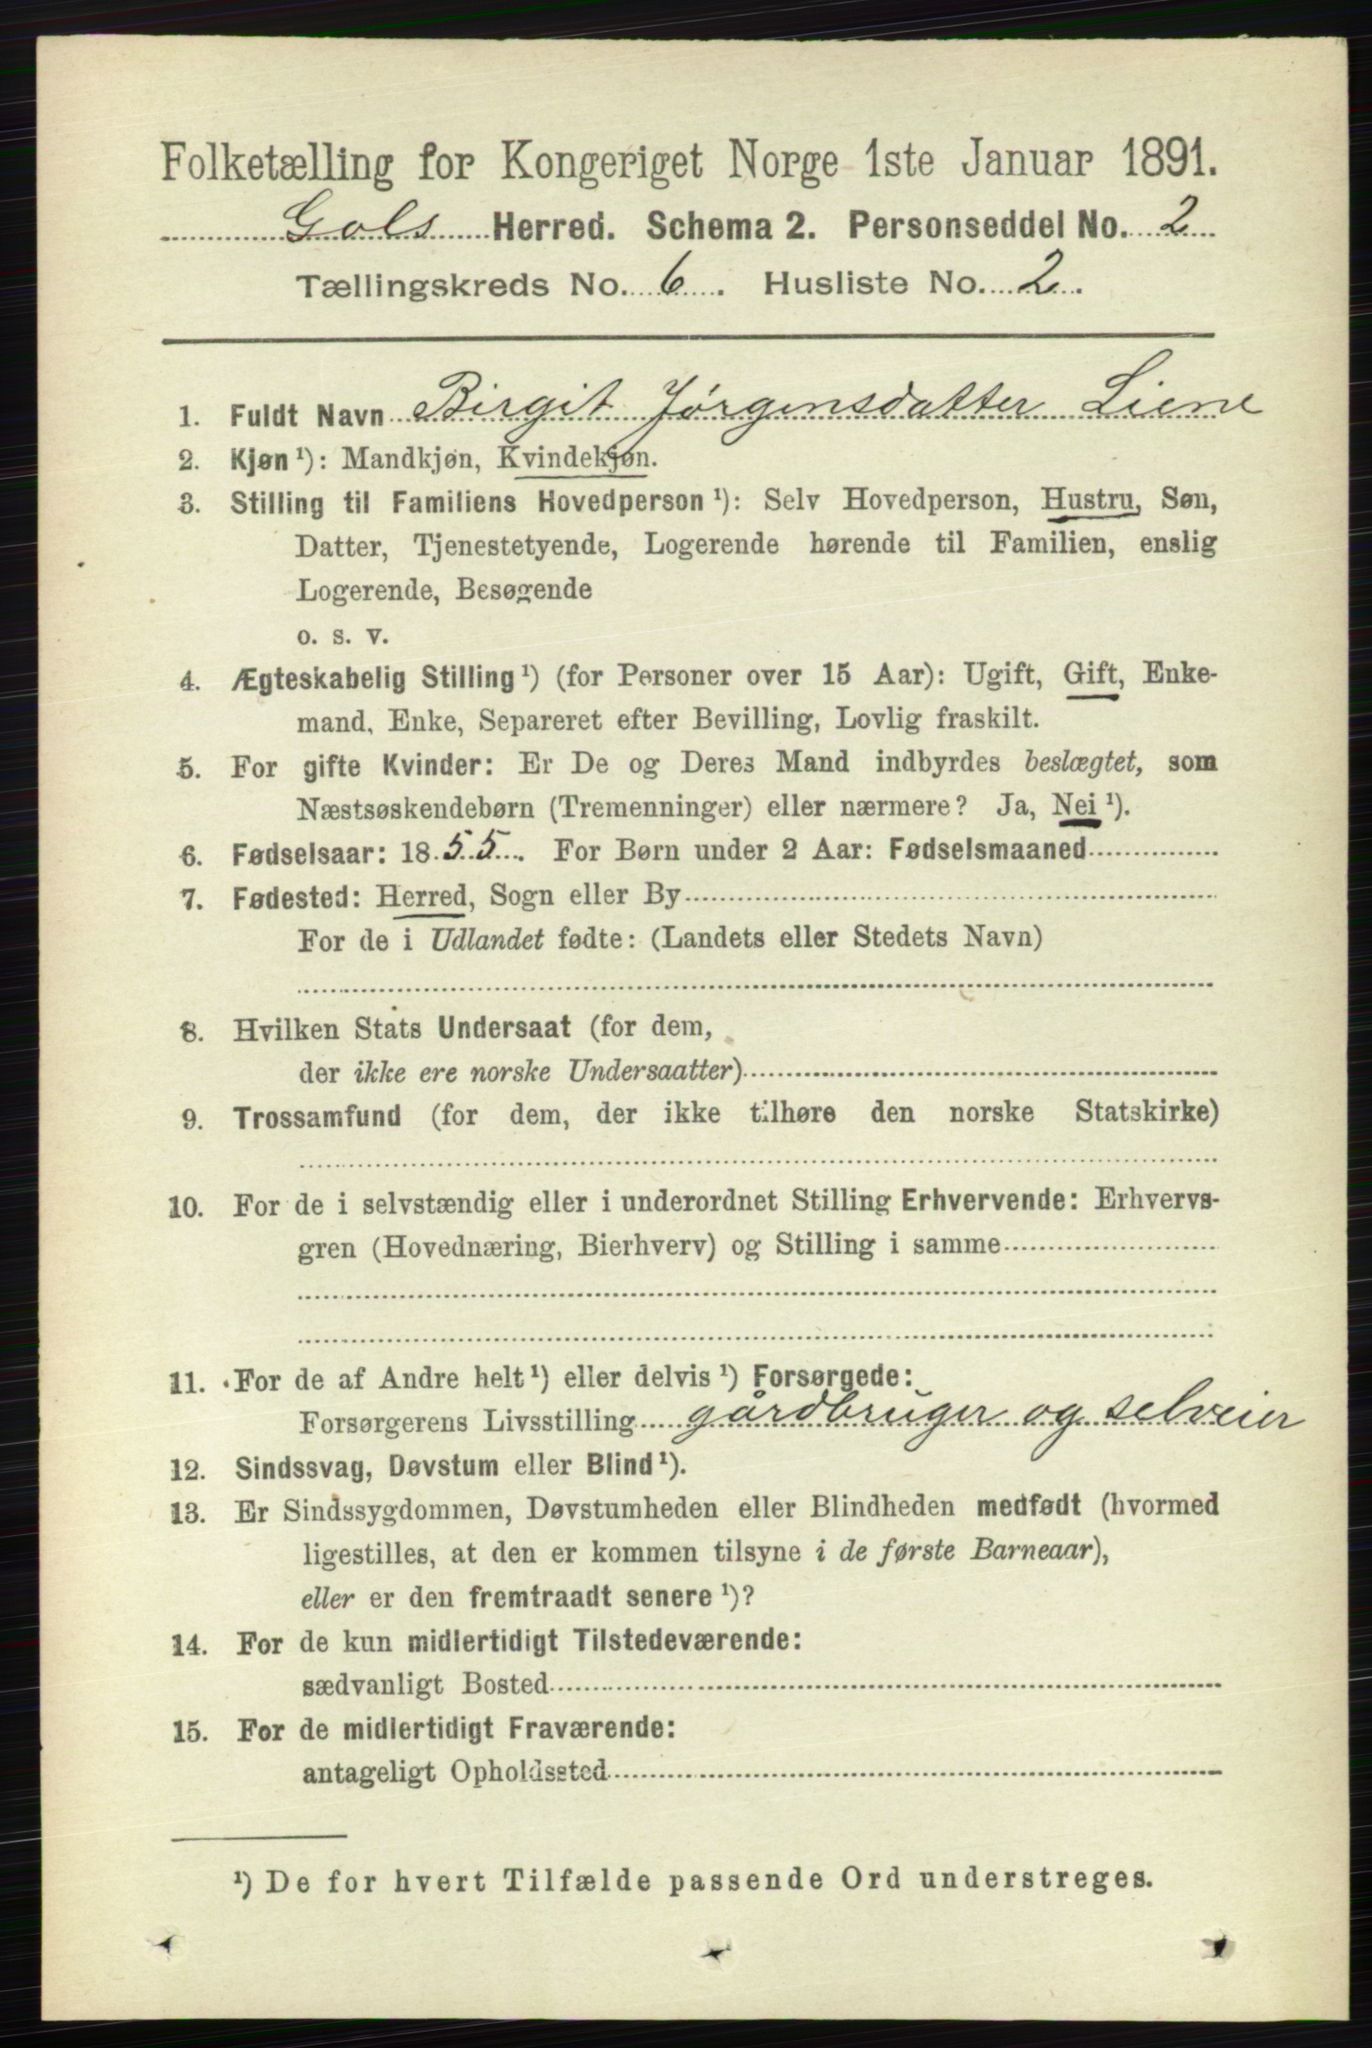 Folketælling for Kongeriget Norge 1ste Januar 1891.
Gols Herred. Schema 2. Personseddel No. 2
Tællingskreds No. 6. Husliste No. 2.
1. Fuldt Navn Birgit Jørgensdatter Liene
2. Kjøn ¹): Mandkjøn, Kvindekjøn.
3. Stilling til Familiens Hovedperson ¹): Selv Hovedperson, Hustru, Søn,
Datter, Tjenestetyende, Logerende hørende til Familien, enslig
Logerende, Besøgende
o. s. v.
4. Ægteskabelig Stilling ¹) (for Personer over 15 Aar): Ugift, Gift, Enke-
mand, Enke, Separeret efter Bevilling, Lovlig fraskilt.
5. For gifte Kvinder: Er De og Deres Mand indbyrdes beslægtet, som
Næstsøskendebørn (Tremenninger) eller nærmere? Ja, Nei ¹).
6. Fødselsaar: 1855. For Børn under 2 Aar: Fødselsmaaned
7. Fødested: Herred, Sogn eller By
For de i Udlandet fødte: (Landets eller Stedets Navn)
8. Hvilken Stats Undersaat (for dem,
der ikke ere norske Undersaatter)
9. Trossamfund (for dem, der ikke tilhøre den norske Statskirke)
10. For de i selvstændig eller i underordnet Stilling Erhvervende: Erhvervs-
gren (Hovednæring, Bierhverv) og Stilling i samme
11. For de af Andre helt ¹) eller delvis ¹) Forsørgede:
Forsørgerens Livsstilling gårdbruger og selveier
12. Sindssvag, Døvstum eller Blind ¹).
13. Er Sindssygdommen, Døvstumheden eller Blindheden medfødt (hvormed
ligestilles, at den er kommen tilsyne i de første Barneaar),
eller er den fremtraadt senere ¹)?
14. For de kun midlertidigt Tilstedeværende:
sædvanligt Bosted
15. For de midlertidigt Fraværende:
antageligt Opholdssted
¹) De for hvert Tilfælde passende Ord understreges.